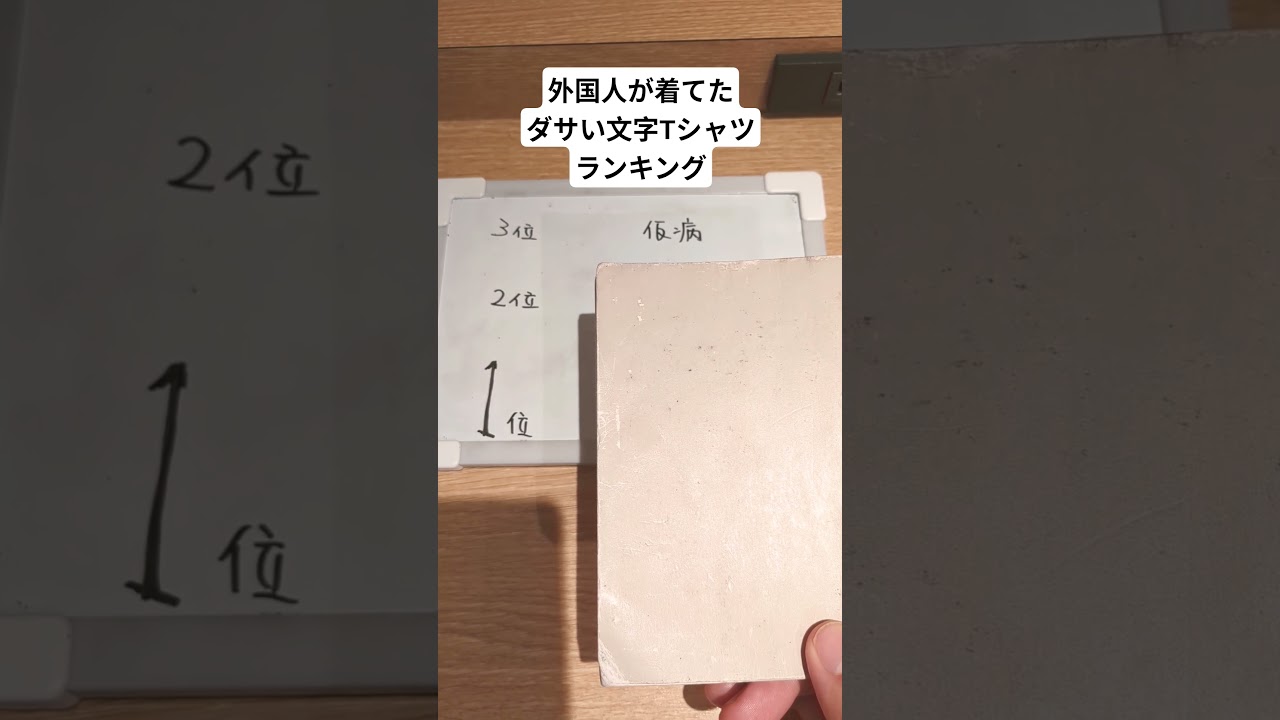 外国人が着てた
ダサい文字Tシャツ
ランキング
3位 仮病
2位
1位
2位
1位